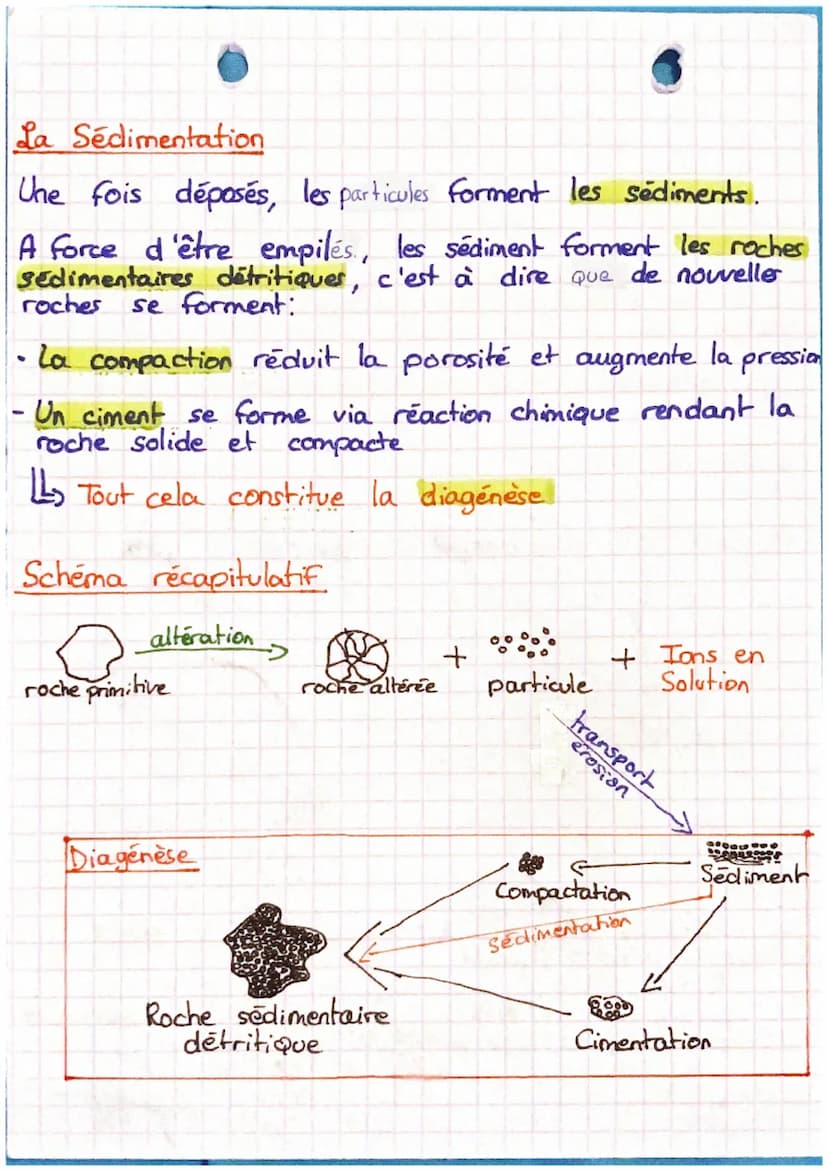 La Sédimentation
Une fois déposés, les particules forment les sédiments.
A force d'être empilés, les sédiment forment les roches
sédimentaires détritiques, c'est à dire que de nouvelles
roches se forment:
• La compaction réduit la porosité et augmente la pression
- Un ciment se forme via réaction chimique rendant la
roche solide et compacte
↳ Tout cela constitue la diagénèse
Schéma récapitulatif
altération
+ + Ions en
roche primitive roche altérée particule Solution
transport
érosion
Diagénèse
Sédiment
Compactation
Sédimentation
Roche sédimentaire
détritique
Cimentation